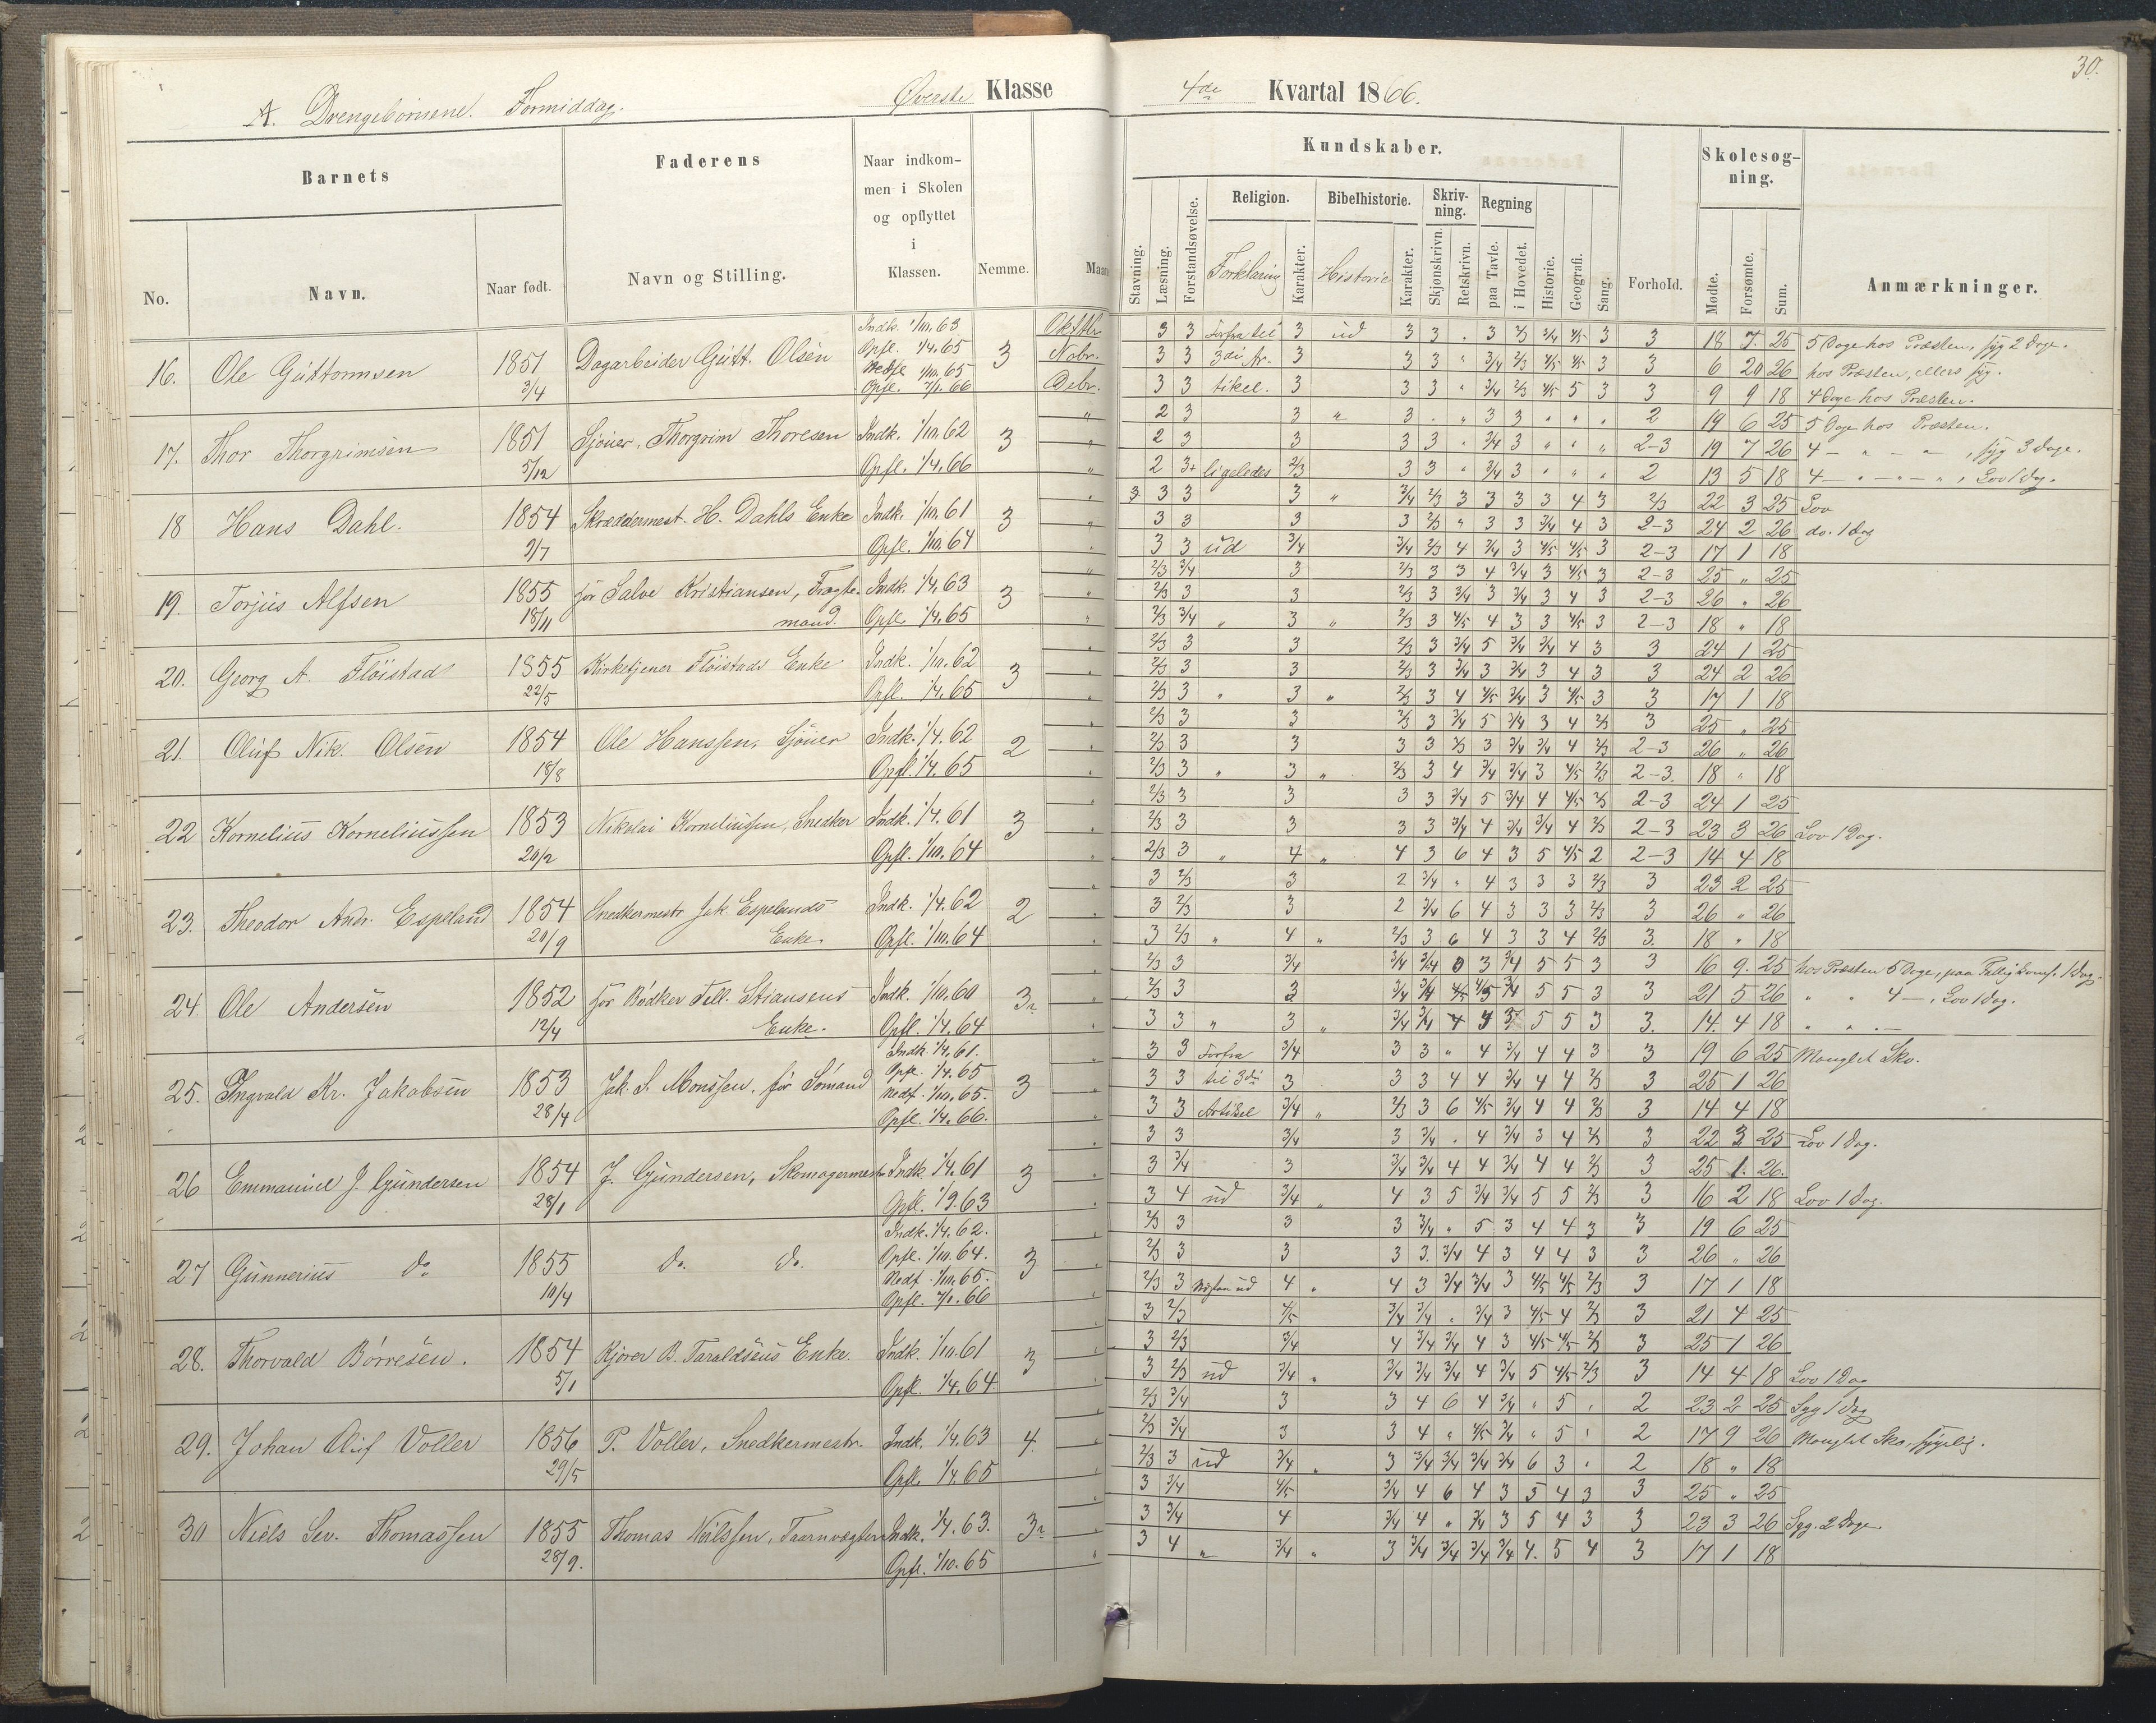 30.
A. Drengebørnene. Formiddag. Øverste Klasse
4de Kvartal 1866.
Barnets
Faderens
Naar indkom-
men i Skolen
og opflyttet
i
Klassen.
No.
Navn.
Naar født.
Navn og Stilling.
Nemme.
Kundskaber.
Skolesøg-
ning.
Religion.
Bibelhistorie.
Skriv-
ning.
Regning
Stavning.
Læsning.
Forstandsøvelse.
Forklaring
Karakter.
Historie
Karakter.
Skjønskrivn.
Retskrivn.
paa Tavle.
i Hovedet.
Historie.
Geografi.
Sang.
Forhold.
Mødte.
Forsømte.
Sum.
Anmærkninger.
16. Ole Guttormsen 1851 3/4 Dagarbeider Gutt. Olsen 3
Indk. 1/10.63
Opfl. 1/4.65
Nedfl. 1/10.65
Opfl. 7/1.66
3 3 Forfra til 3 ud 3 3 3 18 7 25 5 Dage hos Præsten, syg 2 Dage.
Nobr. 3 3 3di Ar- 3 3 3 3 6 20 26 hos Præsten, ellers syg.
Debr. 3 3 tikel. 3 3 3 3 9 9 18 4 Dage hos Præsten.
17. Thor Thorgrimsen 1851 5/12 Sjøuer, Thorgrim Thoresen 3
Indk. 1/10.62
Opfl. 1/4.66
2 3 3 " 3 2 19 6 25 5 Dage hos Præsten.
2 3 3 3 3 2-3 19 7 26 4 — " — " — , syg 3 Dage.
2 3+ ligeledes 2/3 3 3 2 13 5 18 4 — " — " — " , Lov 1 Dag.
18 Hans Dahl. 1854 2/7 Skræddermest. H. Dahls Enke 3
Indk. 1/10.61
Opfl. 1/10.64
3 3 3 " 3/4 2/3 3 3 3 3 4 3 2/3 22 3 25 Lov
3 3 3 3 2/3 " 3 3 3/4 4 3 2-3 24 2 26 do. 1 Dag
3 3 ud 3/4 3/4 2/3 4 3/4 3 4/5 4/5 3 2-3 17 1 18
19. Torjus Alfsen 1855 18/11 for Salve Kristiansen, Fragte-
mand. 3
Indk. 1/4.63
Opfl. 1/4.65
2/3 3/4 3 2/3 3 3 4 3/4 3 4/5 3 2-3 25 " 25
2/3 3 3 2/3 3 3/4 3 3/4 3 4 3 2-3 26 " 26
2/3 3/4 " 3 " 2/3 3 4/5 4 3 3 4/5 3 2-3 18 " 18
20. Georg A. Fløistad 1855 22/5 Kirketjener Fløistads Enke 3
Indk. 1/10.62
Opfl. 1/4.65
2/3 3 3 2/3 3 3/4 5 3/4 3/4 4 3 3 24 1 25
2/3 3 3 2/3 3 3/4 3 3/4 3 4 3 3 24 2 26
2/3 3 " 3 " 2/3 3 4 4/5 3/4 3 4/5 3 3 17 1 18
21. Oluf Nik. Olsen 1854 18/8 Ole Hanssen, Sjøuer 2
Indk. 1/4.62
Opfl. 1/4.65
2/3 3 3 2/3 3 3/4 5 3/4 3 4 2/3 3 25 " 25
2/3 3 3 3 3 2/3 3 3/4 3/4 4 2/3 2-3 26 " 26
2/3 3 " 3 " 2/3 3 4 3/4 3/4 3 4/5 2/3 2-3. 18 " 18
22 Kornelius Korneliussen 1853 20/2 Nikolai Korneliussen, Snedker 3
Indk. 1/4.61
Opfl. 1/10.64
2/3 3 3 3 3 3/4 5 3/4 4 4/5 2/3 2-3 24 1 25
2/3 3 3 3 3 3/4 4 3/4 3/4 4 2/3 2-3 23 3 26 Lov 1 Dag.
2/3 3 " 4 " 4 3 6 4 3 5 4/5 2 2-3 14 4 18
23. Theodor Andr. Espeland 1854 20/9 Snedkermestr. Jak. Espelands
Enke. 2
Indk. 1/4.62
Opfl. 1/10.64
3 2/3 3 2 3/4 " 4 3 3 3 2/3 3 23 2 25
3 2/3 3 2 3/4 6 4 3 3 3 2/3 3 26 " 26
3 2/3 " 4 " 2/3 3 6 4 3 3 4 2/3 3. 18 " 18
24. Ole Andersen 1852 12/4 for Bødker Tell. Stiansens
Enke. 3
Indk. 1/10.60
Opfl. 1/4.64
2/3 3 3/4 3/4 3/4 0 3 3/4 5 5 3 3 16 9. 25 hos Præsten 5 Dage, 1 Dag.
2/3 3 3 3/4 3/4 5 5 3 3 21 5 26 " " 4 — , Lov 1 Dag.
3 3 " 3 " 3/4 3/4 5 5 3 3. 14. 4 18 " " . —
25. Ingvald Kr. Jakobsen 1853 28/4 Jak. S. Monssen, før Sømand 3
Indk. 1/4.61.
Opfl. 1/4.65
Nedf. 1/10.65.
Opfl. 1/4.66.
3 3 Forfra 3/4 3 3 " 4 3/4 4 4 3 3 19 6 25 Manglet Sko.
3 3 til 3di 3 3 3 4 4 3/4 4 4 2/3 3 25 1 26
3 3 Artikel 3/4 " 2/3 3 6 4/5 3/4 4 4 2/3 3 14 4 18
26 Emmanuel J. Gundersen 1854 28/1 J. Gundersen, Skomagermestr. 3
Indk. 1/4.61
Opfl. 1/9.63
3 3 3/4 3 3/4 . 4 3/4 3 4 2/3 3 22 3 25 Lov 1 Dag.
3 3/4 3 3/4 3/4 4 4 3/4 4 4 2/3 3 25 1. 26.
3 4 ud 3/4 " 4 3 5 3/4 3/4 5 5 2/3 3 16 2 18 Lov 1 Dag.
27 Gunnerius do 1855 10/4 do. do. 3
Indk. 1/4.62.
Opfl. 1/10.64.
Nedf. 1/10.65.
Opfl. 7/1.66
2/3 3 3 3 3/4 " 5 3 4 4 3 3 19 6 25
2/3 3 3 3 3. 3/4 4 3 4 4 3 3 26 " 26
2/3 3 Næsten ud 4 " 4 3 3/4 3/4 3 4/5 4/5 2/3 3 17 1 18
28. Thorvald Børresen. 1854 5/1 Kjører B. Taraldsens Enke. 3
Indk. 1/10.61
Opfl. 1/4.64.
3 2/3 4/5 3/4 3/4 . 3/4 3 4/5 4 2/3 3 21 4 25
3 2/3 3/4 4 3/4 3/4 4 3 4/5 4/5 2/3 3 25 1 26
3 2/3 ud 3/4 " 3/4 3/4 3/4 4 3/4 5 4/5 2/3 3 14 4 18 Lov 1 Dag
29. Johan Oluf Voller 1856 29/5 P. Voller, Snedkermestr. 4.
Indk. 1/4.63
Opfl. 1/4.65
2/3 3/4 3 3 4 6 4 3/4 " 5 . 2 23 2 25 Syg 1 Dag
2/3 3/4 3 3 4 " 4/5 3/4 " 5 . 2 17 9 26 Manglet Sko, sygelig.
2/3 3 ud 3/4 " 3 3/4 3/4 3/4 3/4 6 3 . 2 18 " 18
30 Niels Sev. Thomassen 1855 28/9. Thomas Neilssen, Taarnvægter 3
Indk. 1/4.63.
Opfl. 1/10.65
3 3/4 4/5 3/4 4 6 4 3 5 4 3 3 25 " 25
3 3/4 4 3/4 4 " 3/4 3 5 4 3 3 23 3 26 Syg. 2 Dage
3 4 " 3/4 " 3 3/4 3/4 3/4 3/4 4. 5 4 3 17 1 18